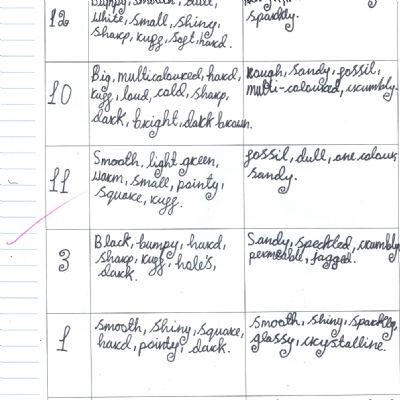 12
Bumpy, smooth, dull,
White, small, shiny,
sharp, ruff, soft, hard.
sparkly.
10
Big, multicoloured, hard,
ruff, loud, cold, sharp,
dark, bright, dark brown.
Rough, sandy, fossil,
multi-coloured, crumbly.
11
Smooth, light green,
warm, small, pointy,
square, ruff.
fossil, dull, one colour,
sandy.
3
Black, bumpy, hard,
sharp, ruff, hole's,
dark.
Sandy, speckled, crumbly
permeable, jagged.
1
smooth, shiny, square,
hard, pointy, dark.
smooth, shiny, sparkly,
glassy, crystalline.